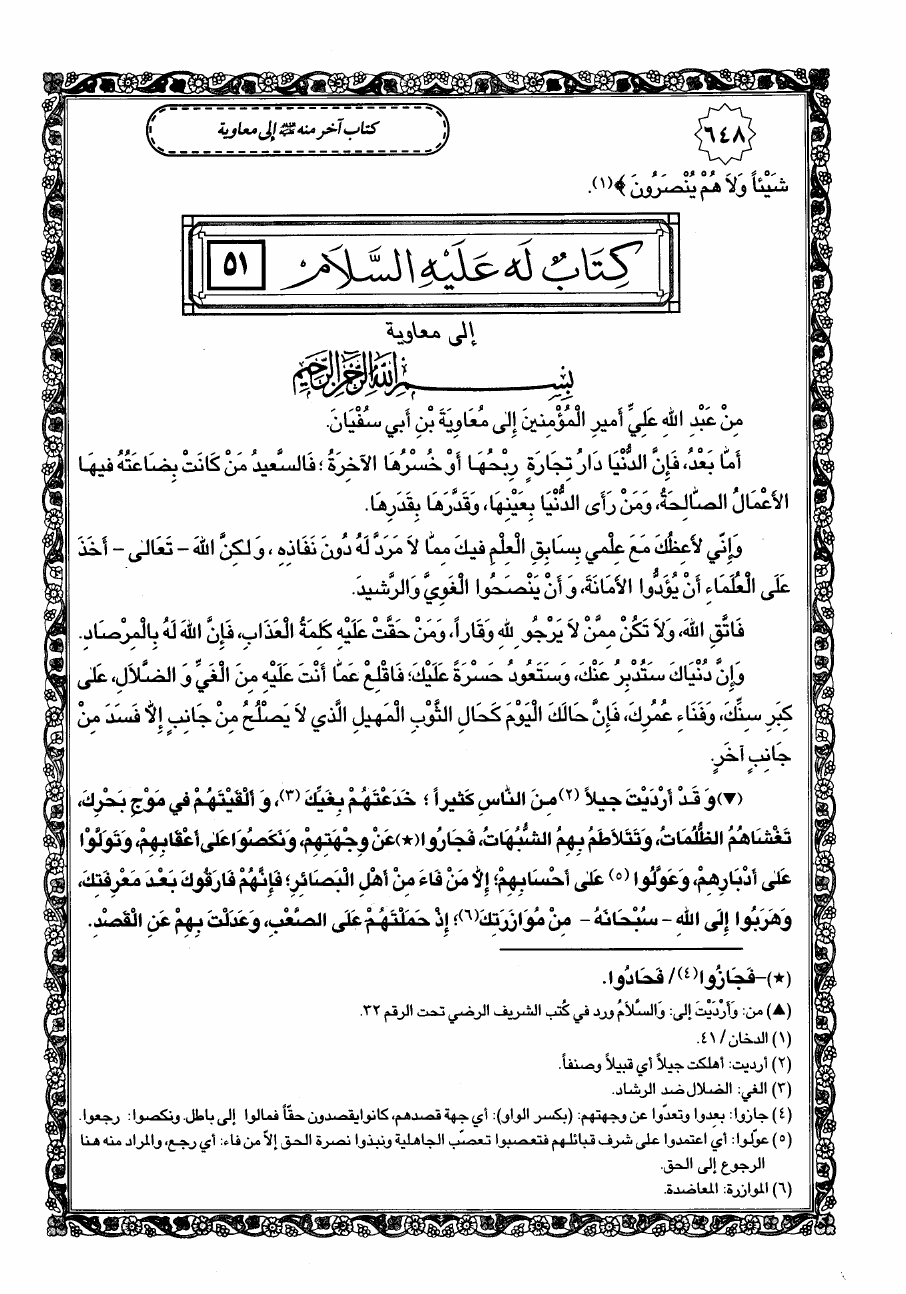 ٦٤٨
كتاب آخر منه ﷺ إلى معاوية
شَيْئاً وَلاَ هُمْ يُنْصَرُونَ ﴾(١).
كِتَابٌ لَه عَلَيْهِ السَّلاَم ٥١
إلى معاوية
بِسْمِ اللهِ الرَّحْمنِ الرَّحِيمِ
مِنْ عَبْدِ اللهِ عَلِيٍّ أَميرِ الْمُؤْمِنينَ إِلىٰ مُعَاوِيَةَ بْنِ أَبي سُفْيَانَ.
أَمّا بَعْدُ، فَإِنَّ الدُّنْيَا دَارُ تِجَارَةٍ رِبْحُهَا أَوْ خُسْرُهَا الآخِرَةُ؛ فَالسَّعيدُ مَنْ كَانَتْ بِضَاعَتُهُ فيهَا
الأَعْمَالُ الصّالِحَةُ، وَمَنْ رَأَى الدُّنْيَا بِعَيْنِهَا، وَقَدَّرَهَا بِقَدَرِهَا.
وَإِنّي لأَعِظُكَ مَعَ عِلْمي بِسَابِقِ الْعِلْمِ فيكَ مِمّا لاَ مَرَدَّ لَهُ دُونَ نَفَاذِهِ، وَلٰكِنَّ اللهَ - تَعَالىٰ - أَخَذَ
عَلَى الْعُلَمَاءِ أَنْ يُؤَدُّوا الأَمَانَةَ، وَأَنْ يَنْصَحُوا الْغَوِيَّ وَالرَّشيدَ.
فَاتَّقِ اللهَ، وَلاَ تَكُنْ مِمَّنْ لاَ يَرْجُو لِلهِ وَقَاراً، وَمَنْ حَقَّتْ عَلَيْهِ كَلِمَةُ الْعَذَابِ، فَإِنَّ اللهَ لَهُ بِالْمِرْصَادِ.
وَإِنَّ دُنْيَاكَ سَتُدْبِرُ عَنْكَ، وَسَتَعُودُ حَسْرَةً عَلَيْكَ؛ فَاقْلِعْ عَمّا أَنْتَ عَلَيْهِ مِنَ الْغَيِّ وَ الضَّلاَلِ، عَلىٰ
كِبَرِ سِنِّكَ، وَفَنَاءِ عُمُرِكَ، فَإِنَّ حَالَكَ الْيَوْمَ كَحَالِ الثَّوْبِ الْمَهيلِ الَّذي لاَ يَصْلُحُ مِنْ جَانِبٍ إِلاّ فَسَدَ مِنْ
جَانِبٍ آخَرٍ.
(▼) وَ قَدْ أَرْدَيْتَ جيلاً (٢) مِنَ النّاسِ كَثيراً ؛ خَدَعْتَهُمْ بِغَيِّكَ (٣)، وَ أَلْقَيْتَهُمْ في مَوْجِ بَحْرِكَ،
تَغْشَاهُمُ الظُّلُمَاتُ، وَتَتَلاَطَمُ بِهِمُ الشُّبُهَاتُ، فَجَارُوا(★)عَنْ وِجْهَتِهِمْ، وَنَكَصُوا عَلىٰ أَعْقَابِهِمْ، وَتَوَلَّوْا
عَلىٰ أَدْبَارِهِمْ، وَعَوَّلُوا (٥) عَلىٰ أَحْسَابِهِمْ؛ إِلاّ مَنْ فَاءَ مِنْ أَهْلِ الْبَصَائِرِ؛ فَإِنَّهُمْ فَارَقُوكَ بَعْدَ مَعْرِفَتِكَ،
وَهَرَبُوا إِلَى اللهِ - سُبْحَانَهُ - مِنْ مُوَازَرَتِكَ(٦)؛ إِذْ حَمَلْتَهُمْ عَلَى الصَّعْبِ، وَعَدَلْتَ بِهِمْ عَنِ الْقَصْدِ.
(★)-فَجَازُوا(٤)/ فَحَادُوا.
(▲) من: وَأَرْدَيْتَ إلى: وَالسَّلاَمُ ورد في كُتب الشريف الرضي تحت الرقم ٣٢.
(١) الدخان / ٤١.
(٢) أرديت: أهلكت جيلاً أي قبيلاً وصنفاً.
(٣) الغي: الضلال ضد الرشاد.
(٤) جازوا: بعدوا وتعدّوا عن وجهتهم: (بكسر الواو): أي جهة قصدهم، كانوا يقصدون حقّاً فمالوا إلى باطل. ونكصوا: رجعوا.
(٥) عوّلوا: أي اعتمدوا على شرف قبائلهم فتعصبوا تعصّب الجاهلية ونبذوا نصرة الحق إلاّ من فاء: أي رجع، والمراد منه هنا
الرجوع إلى الحق.
(٦) الموازرة: المعاضدة.